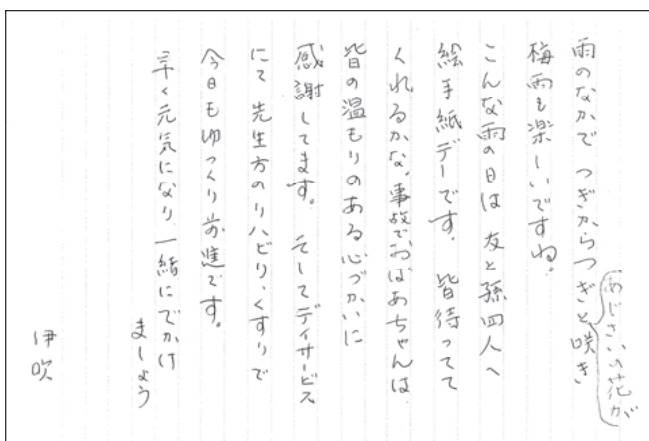 雨のなかで つぎからつぎと咲き
あじさいの花が
梅雨も楽しいですね。
こんな雨の日は 友と孫四人へ
絵手紙デーです。 皆待ってて
くれるかな。事故でおばあちゃんは
皆の温もりのある心づかいに
感謝してます。 そしてデイサービス
にて 先生方のリハビリ、くすりで
今日もゆっくり前進です。
早く元気になり 一緒にでかけ
ましょう
伊吹